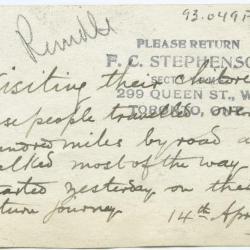 93.049P
Rundle
PLEASE RETURN
F. C. STEPHENSON
299 QUEEN ST., W
TORONTO, ONT
isiting their
se people travelled over
undred miles by road a
lked most of the way
arted yesterday on the
turn journey. 14th Apri